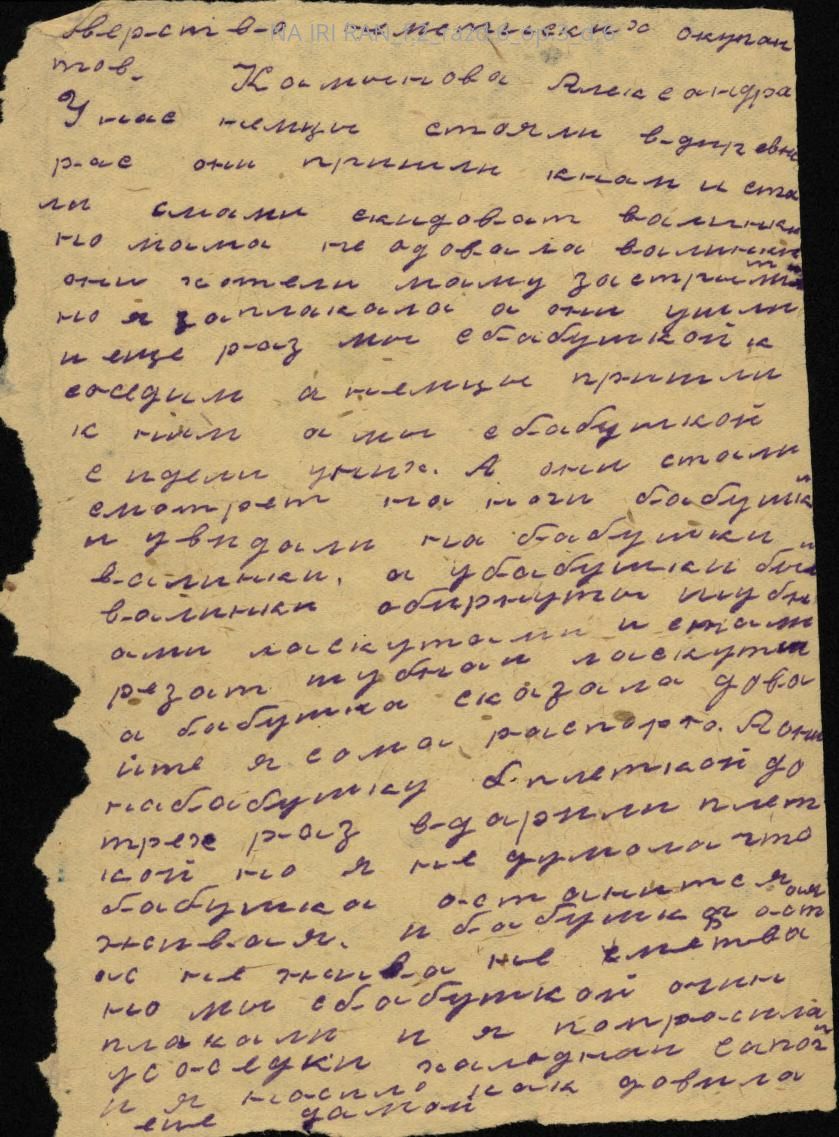 Зверства неметьских окупан
тов. Камынова Александра
У нас немцы стояли вдиревне
рас они пришли кнам и ста
ли смами скидоват валинки
но мама не одовала валинки
они хотели маму застрилить
но я заплакала а они ушли
и еще раз мы сбабушкой к
соседим а немцы пришли
к ним а мы сбабушкой
сидели уних. А они стали
смотрет на ноги бабушки
и увидали на бабушки
валинки. а убабушки были
валинки обирнуты шубн
ами ласкутами и стали
резат шубнаи ласкути
а бабушка сказала дова
ите я сама распорю. А они
набабушку сплеткой до
трех раз вдарили плет
кой но я не думала что
бабушка останится
живая. и бабушка аст
ас не жива не сметва
но мы сбабушкой очин
плакали и я попросила
усоседки халоднай
и я насило как довила
еще дамой